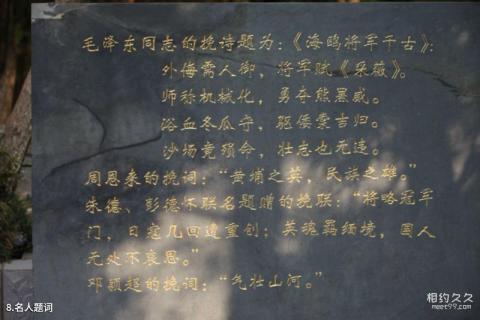 毛泽东同志的挽诗题为：《海鸥将军千古》：
外侮需人御，将军赋《采薇》。
师称机械化，勇夺熊罴威。
浴血冬瓜守，驱倭棠吉归。
沙场竟殒命，壮志也无违。
周恩来的挽词：“黄埔之英，民族之雄。”
朱德、彭德怀联名题赠的挽联：“将略冠军
门，日寇几回遭重创；英魂羁缅境，国人
无处不哀恩。”
邓颖超的挽词：“气壮山河。”
8.名人题词
相约久久
meet99.com